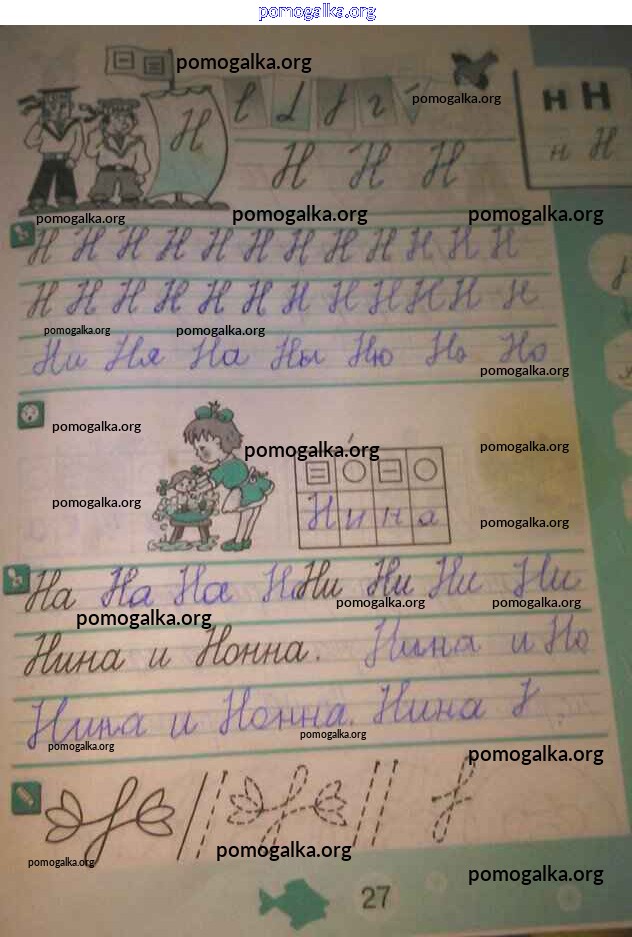 pomogalka.org
pomogalka.org
pomogalka.org
Н
н Н
Н Н Н
н Н
pomogalka.org
pomogalka.org
pomogalka.org
Н Н Н Н Н Н Н Н Н Н Н Н
Н Н Н Н Н Н Н Н Н Н Н Н
pomogalka.org
pomogalka.org
Ни Ня На Ны Ню Но Но
pomogalka.org
pomogalka.org
pomogalka.org
pomogalka.org
pomogalka.org
Нина
pomogalka.org
На На На Н Ни Ни Ни Ни
pomogalka.org
pomogalka.org
pomogalka.org
Нина и Нонна. Нина и Но
Нина и Нонна. Нина
pomogalka.org
pomogalka.org
pomogalka.org
pomogalka.org
pomogalka.org
pomogalka.org
27